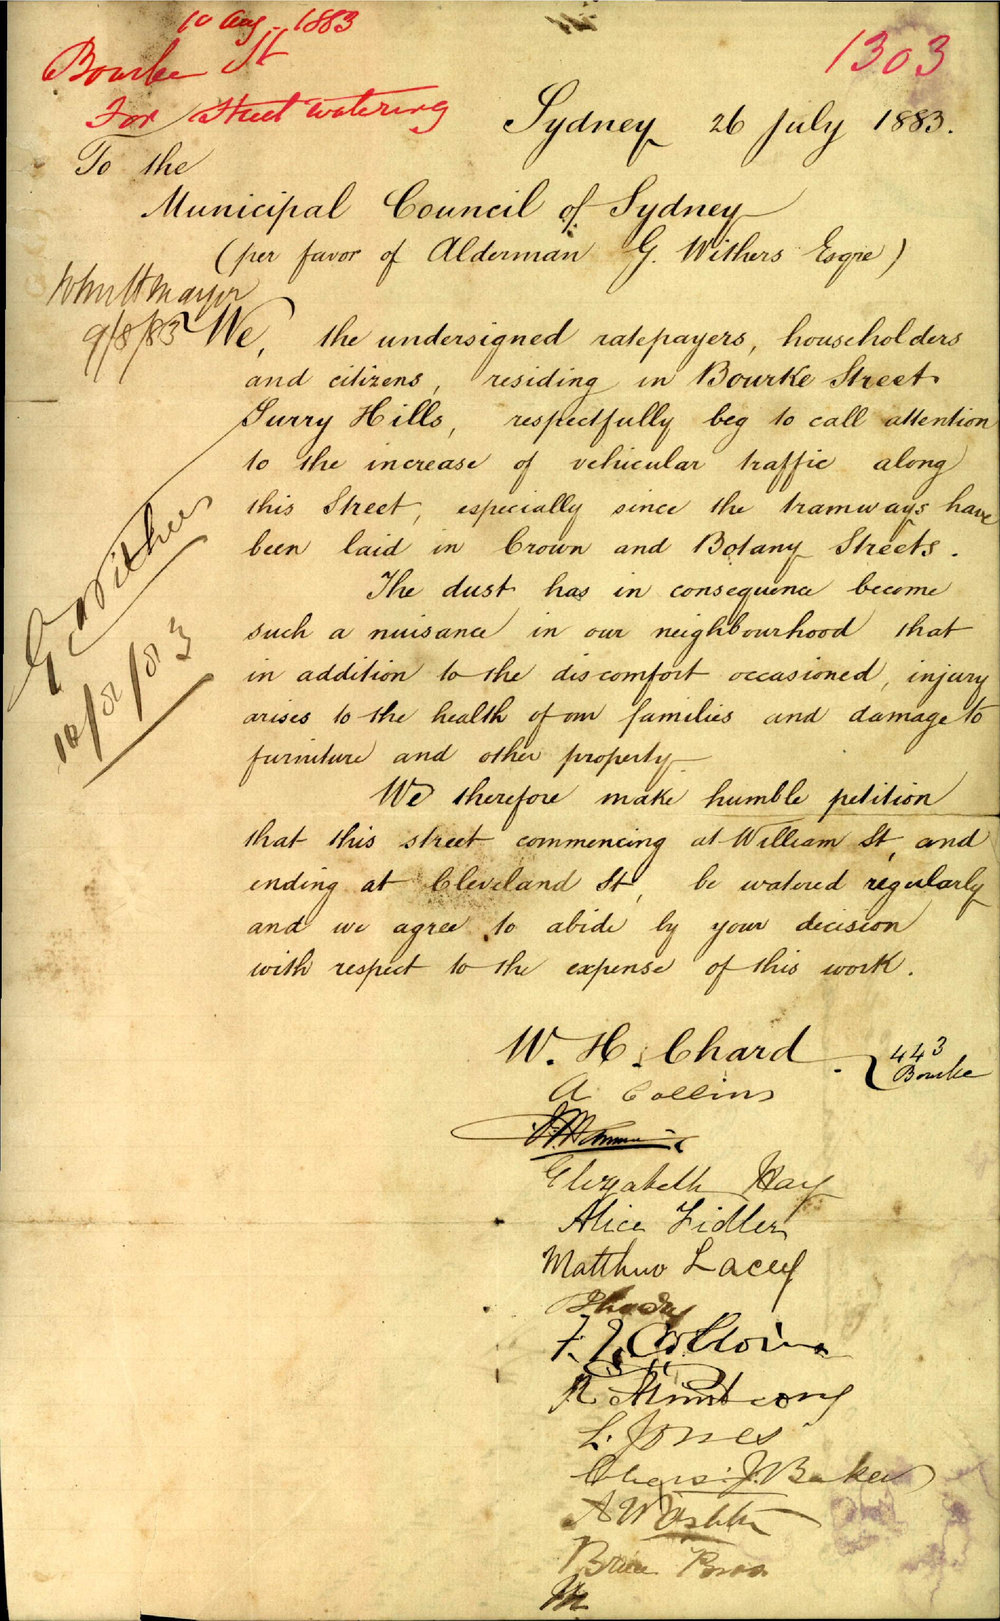 10 Aug. 1883
Bourke St
For Street watering
1303
Sydney 26 July 1883.
To the
Municipal Council of Sydney
(per favor of Alderman G. Withers Esqre)
Mayor
9/8/83
We, the undersigned ratepayers, householders
and citizens, residing in Bourke Street
Surry Hills, respectfully beg to call attention
to the increase of vehicular traffic along
this Street, especially since the tramways have
been laid in Crown and Botany Streets.
The dust has in consequence become
such a nuisance in our neighbourhood that
in addition to the discomfort occasioned, injury
arises to the health of our families and damage to
furniture and other property
We therefore make humble petition
that this street commencing at William St, and
ending at Cleveland St, be watered regularly
and we agree to abide by your decision
with respect to the expense of this work.
G Withers
10/8/83
W. H. Chard. 443
Bourke
A Collins
Elizabeth Hay
Alice Fidler
Matthew Lacey
F. J. Collins
R Armstrong
L. Jones
Chas. J. Baker
Bros